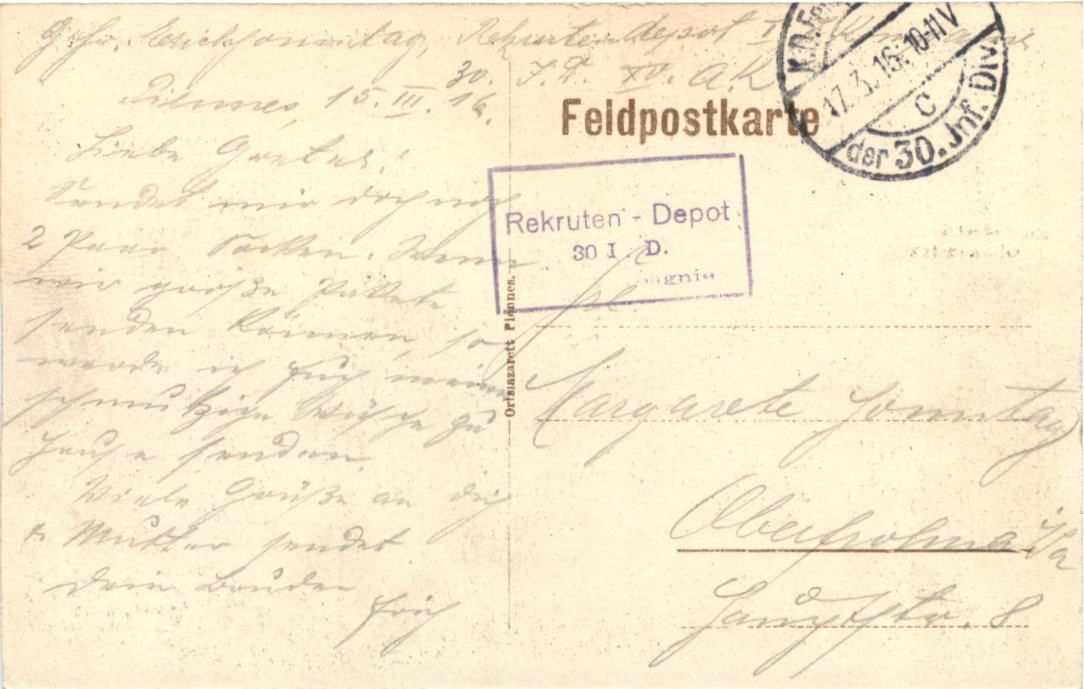 Gefr. Erich Sonntag, Rekruten depot
30. I. D. XV. A. K.
Piennes, 15. III. 16.
Liebe Gretel!
Sendet mir doch noch
2 Paar Socken. Wenn
wir große Pakete
senden können, so
werde ich Euch meine
schmutzige Wäsche zu
Hause senden.
Viele Grüße an dich
u. Mutter sendet
Dein Bruder
Erich
Feldpostkarte
17.3.16. 10-11V
C
der 30. Inf. Div.
Rekruten - Depot
30 I. D.
Ortslazarett Piennes.
Margarete Sonntag
Oberfrohna i/Sa
Hauptstr. 8